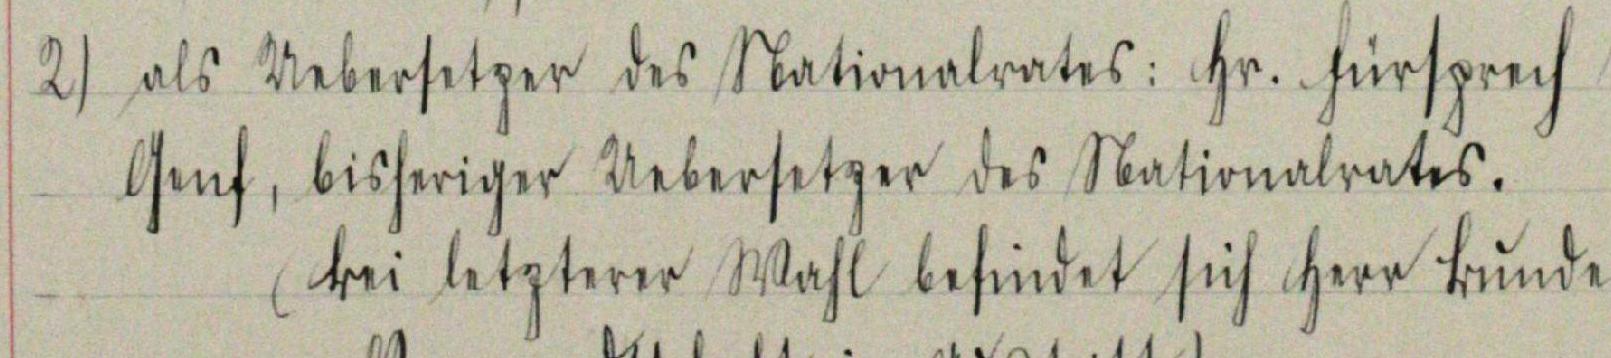 2) als Uebersetzer des Nationalrates: Hr. Fürsprech
Genf, bisheriger Uebersetzer des Nationalrates.
(Bei letzterer Wahl befindet sich Herr Bunde